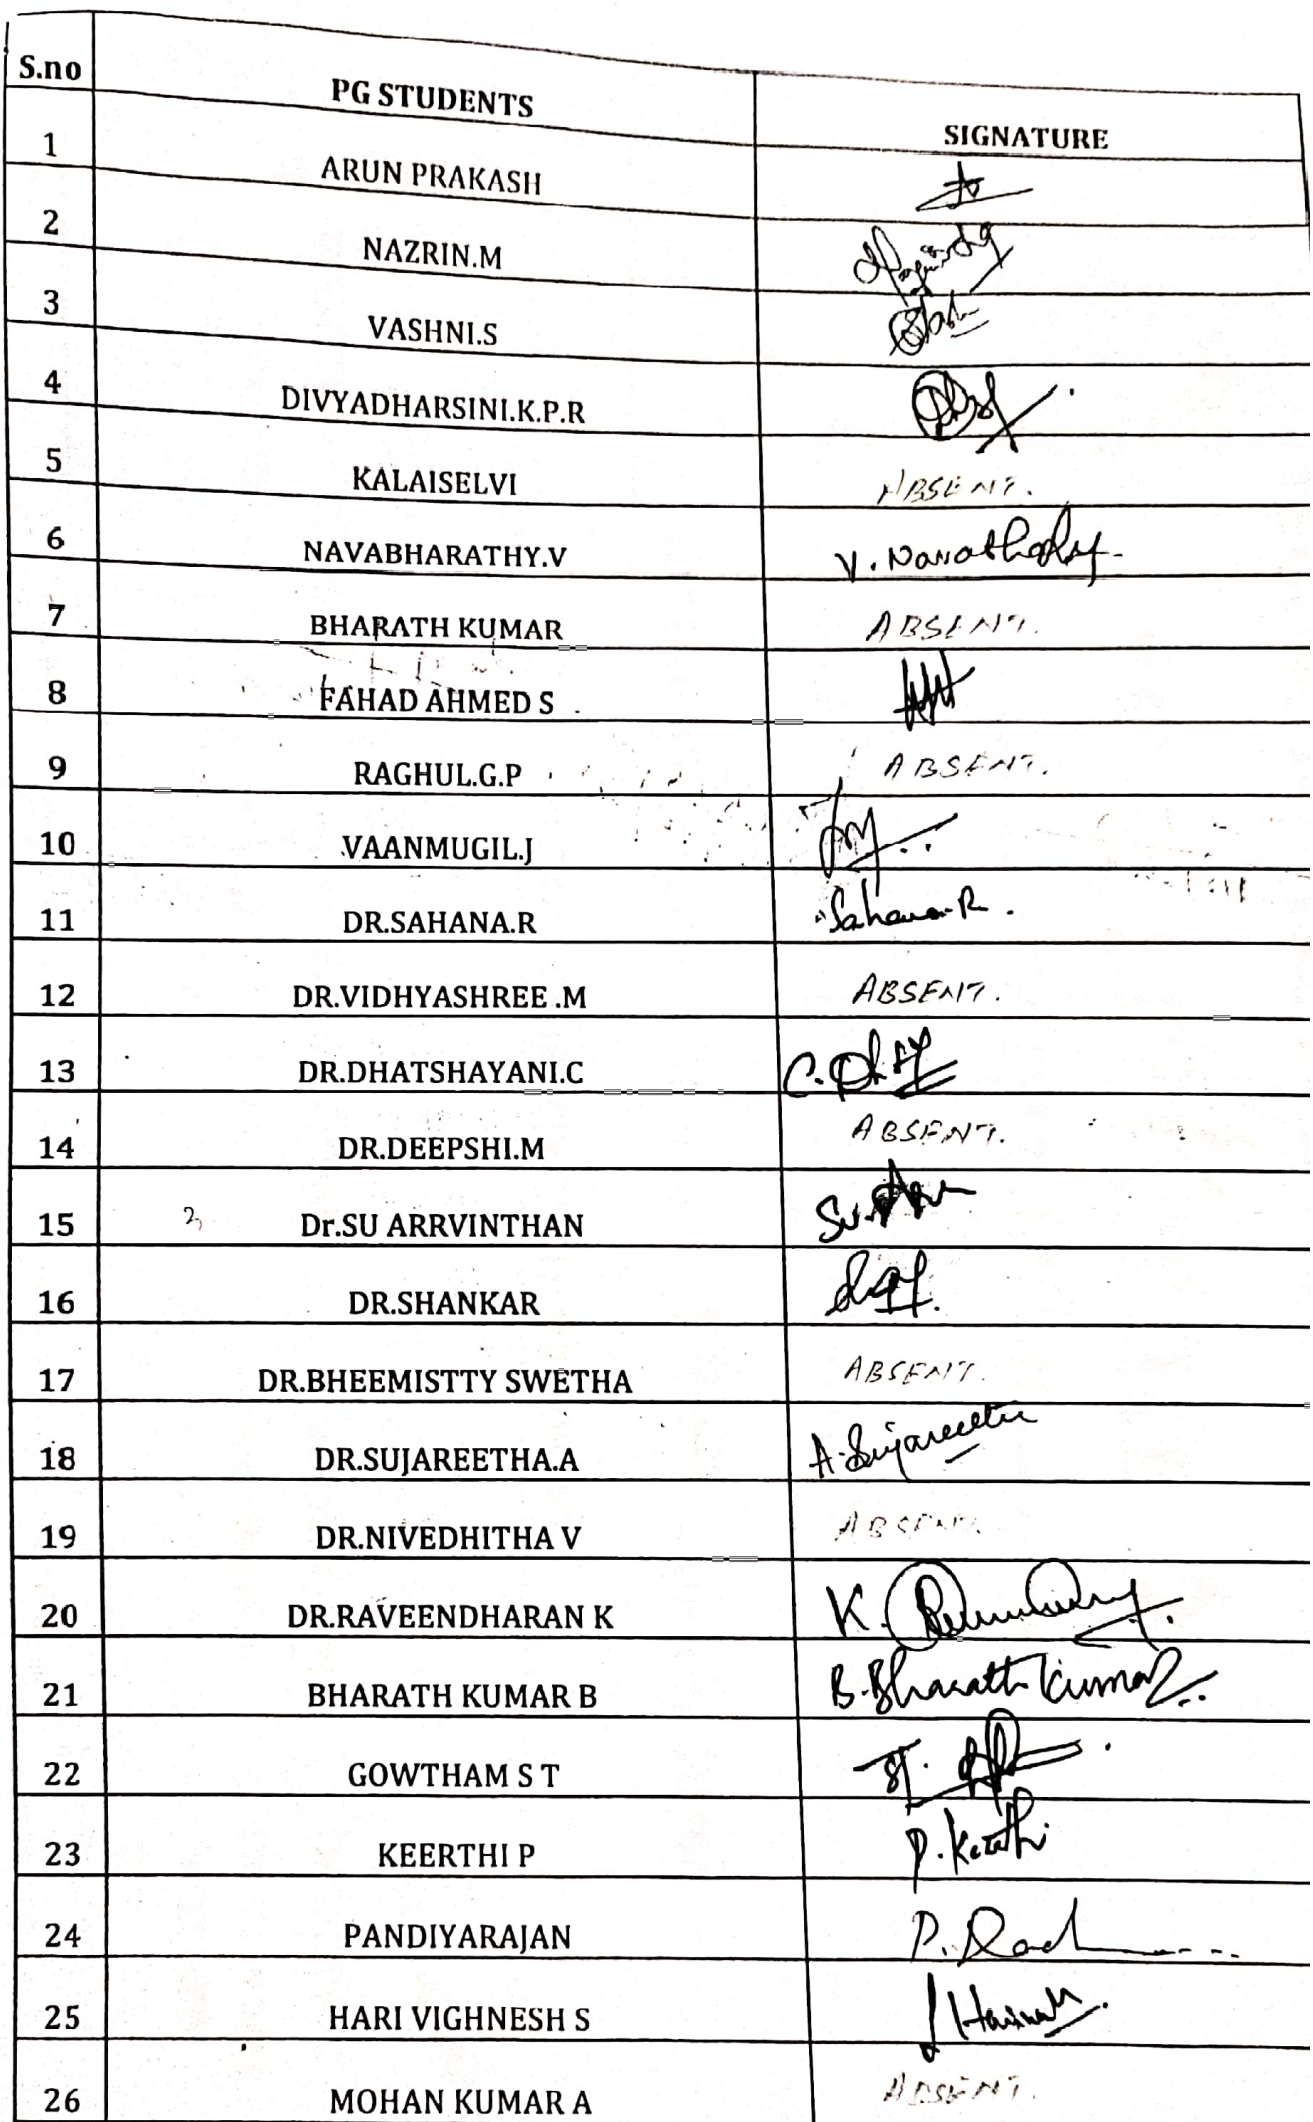 S.no PG STUDENTS SIGNATURE
1 ARUN PRAKASH
2 NAZRIN.M
3 VASHNI.S
4 DIVYADHARSINI.K.P.R
5 KALAISELVI ABSENT.
6 NAVABHARATHY.V V.
7 BHARATH KUMAR ABSENT.
8 FAHAD AHMED S
9 RAGHUL.G.P ABSENT.
10 VAANMUGIL.J
11 DR.SAHANA.R Sahana.R.
12 DR.VIDHYASHREE .M ABSENT.
13 DR.DHATSHAYANI.C C.
14 DR.DEEPSHI.M ABSENT.
15 Dr.SU ARRVINTHAN Su.
16 DR.SHANKAR
17 DR.BHEEMISTTY SWETHA ABSENT.
18 DR.SUJAREETHA.A A.Sujareetha
19 DR.NIVEDHITHA V ABSENT.
20 DR.RAVEENDHARAN K K.
21 BHARATH KUMAR B B.Bharath Kumar
22 GOWTHAM S T
23 KEERTHI P P.Keerthi
24 PANDIYARAJAN P.
25 HARI VIGHNESH S
26 MOHAN KUMAR A ABSENT.